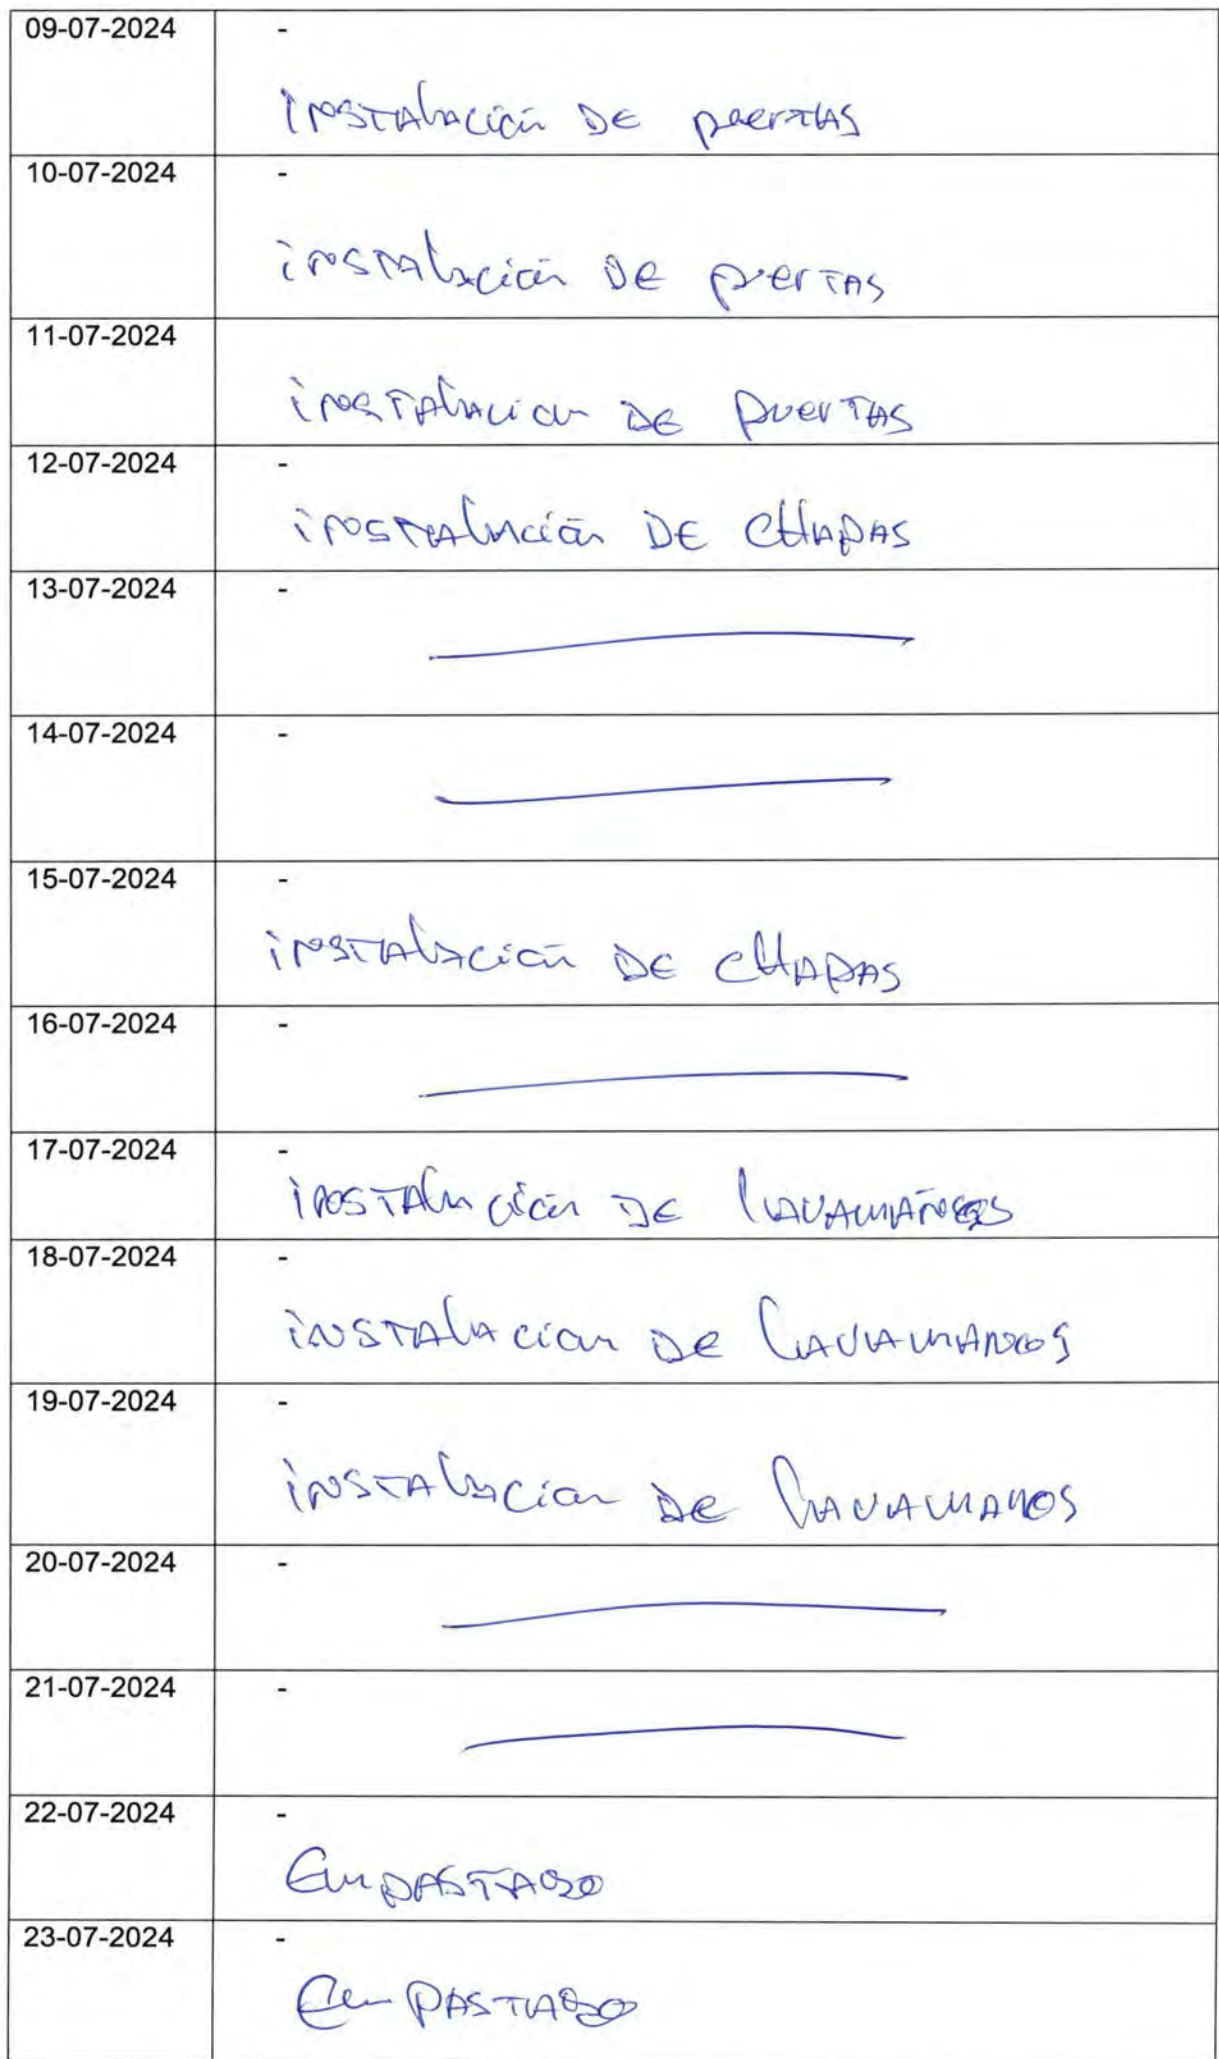 09-07-2024 -
instalación DE puertas
10-07-2024 -
instalación DE puertas
11-07-2024
instalacion DE puertas
12-07-2024 -
instalación DE CHAPAS
13-07-2024 -
14-07-2024 -
15-07-2024 -
instalación DE CHAPAS
16-07-2024 -
17-07-2024 -
instalación DE lavamanos
18-07-2024 -
instalacion DE lavamanos
19-07-2024 -
instalacion DE lavamanos
20-07-2024 -
21-07-2024 -
22-07-2024 -
Empastado
23-07-2024 -
Empastado